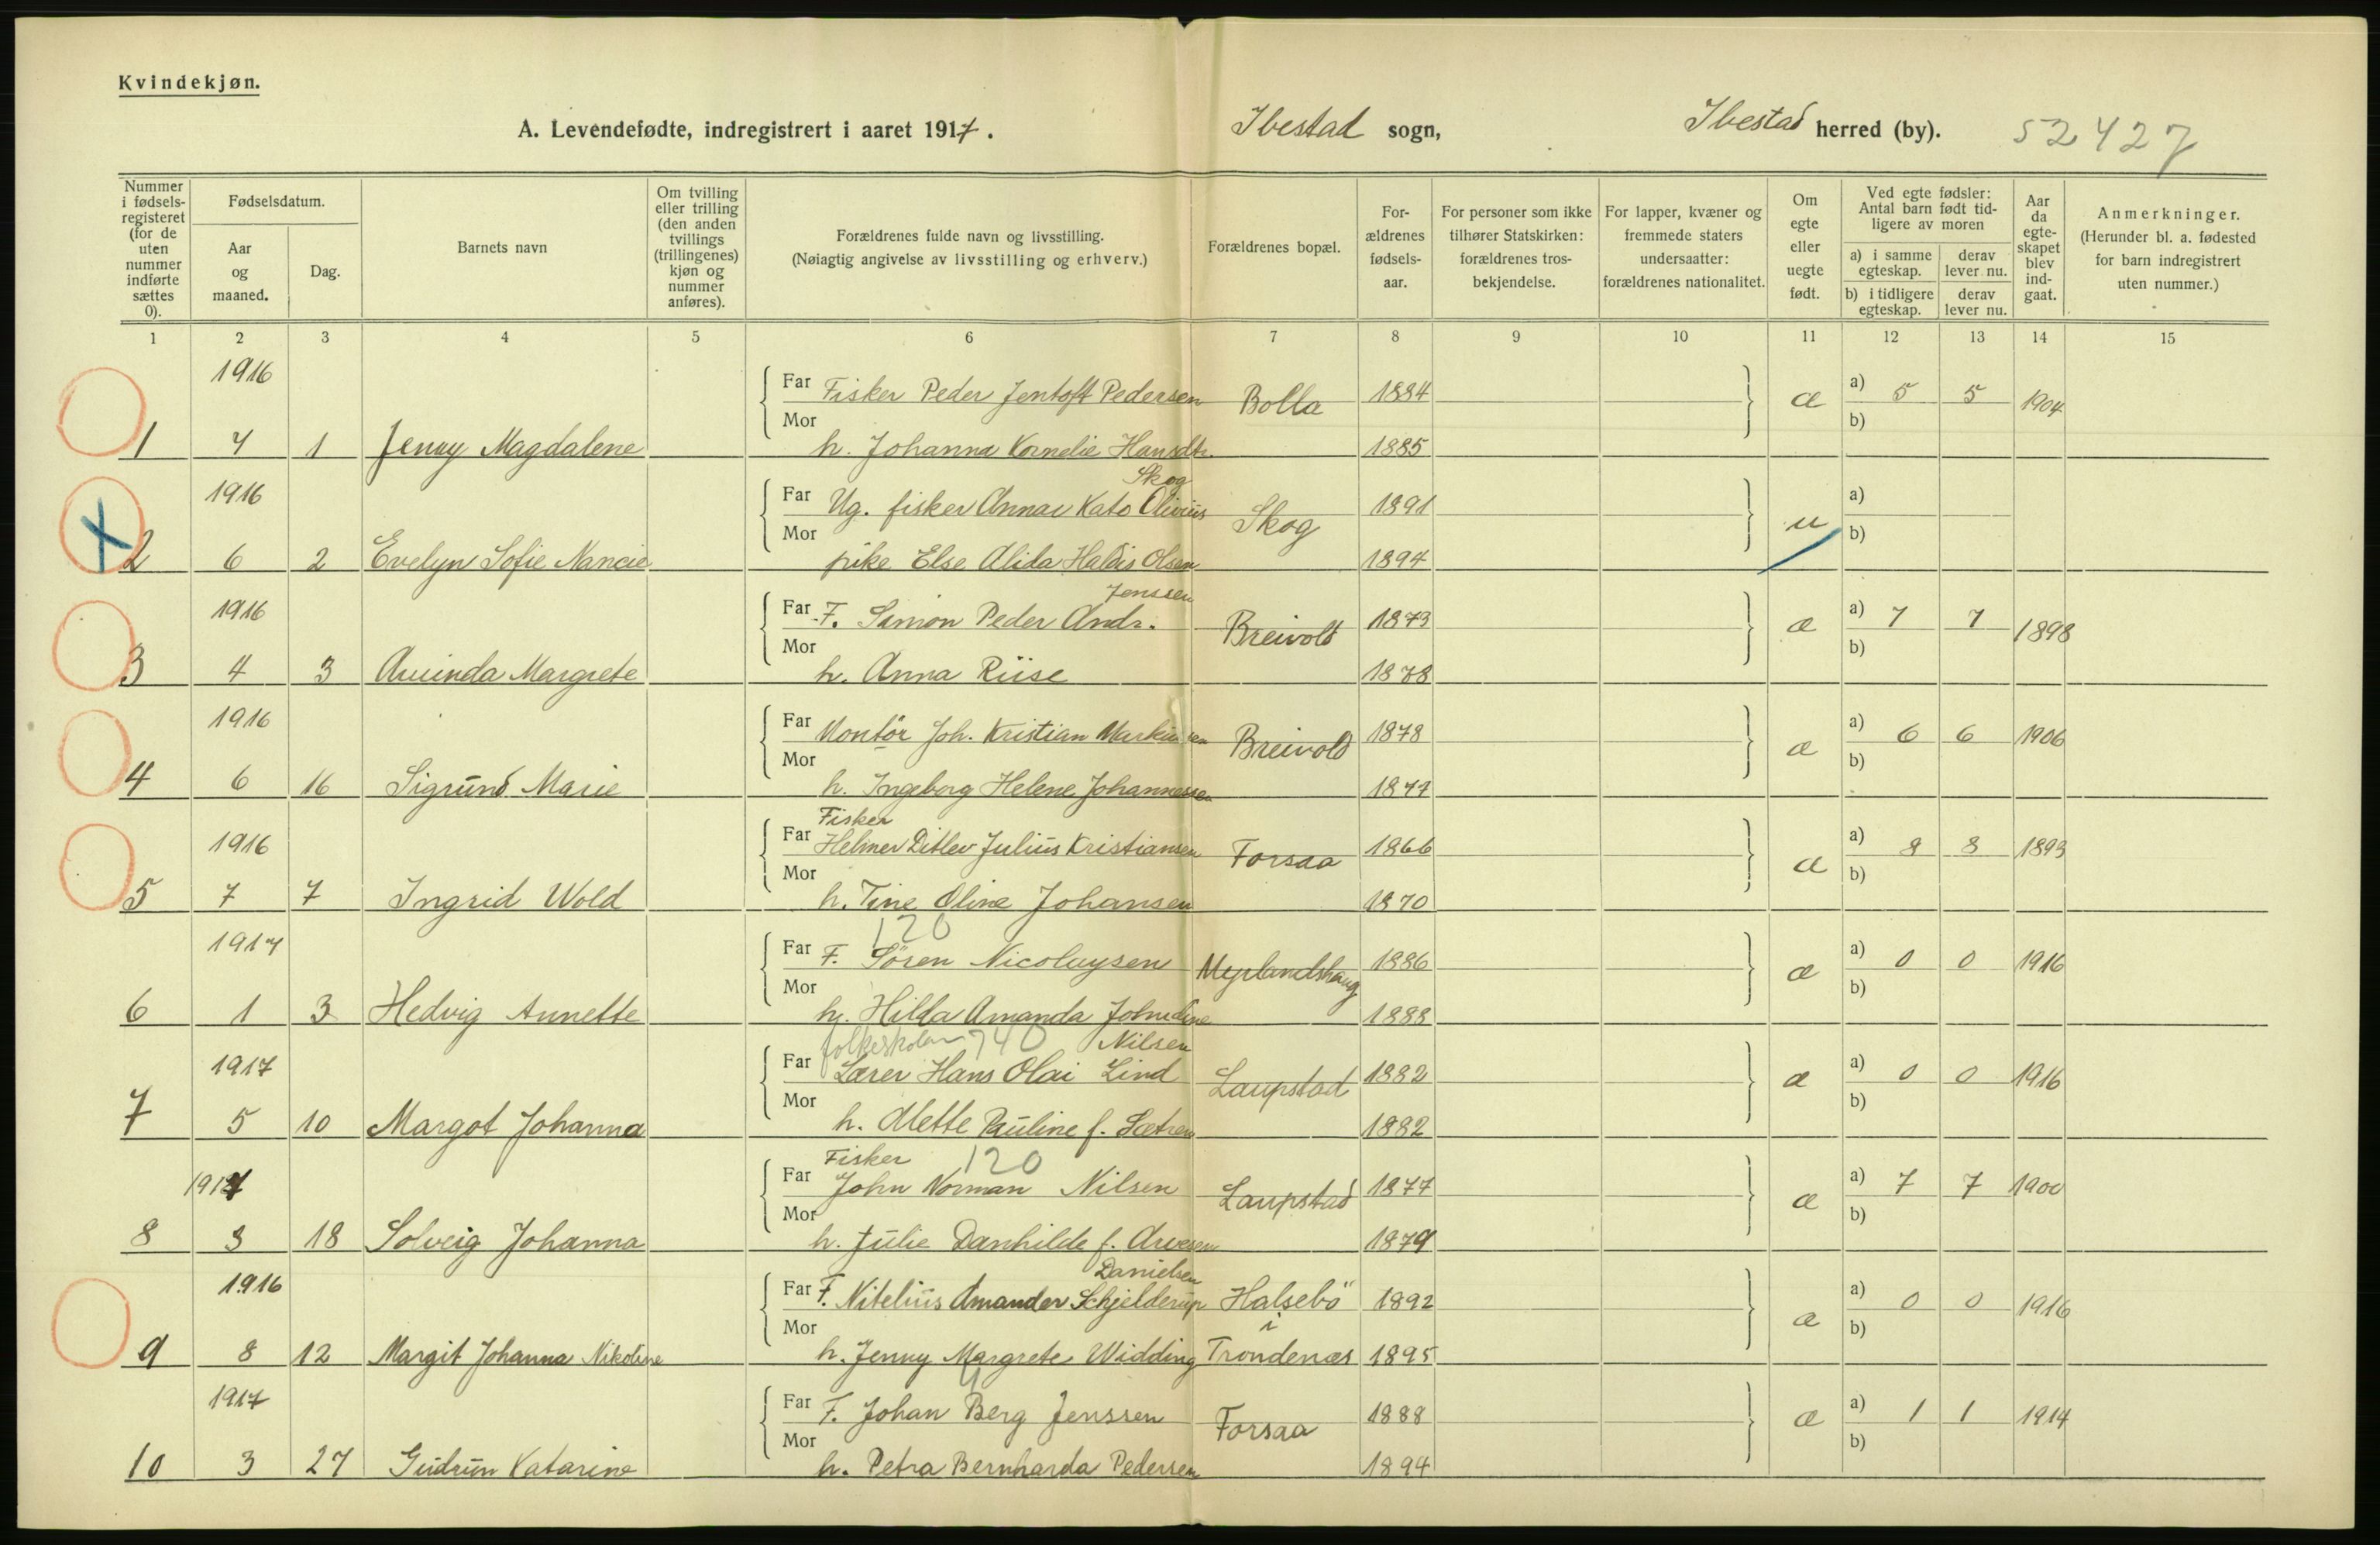 Kvindekjøn.
A. Levendefødte, indregistrert i aaret 1917. Ibestad sogn, Ibestad herred (by). 52427
Nummer i fødsels-registeret (for de uten nummer indførte sættes 0).
Fødselsdatum.
Aar og maaned.
Dag.
Barnets navn
Om tvilling eller trilling (den anden tvillings (trillingenes) kjøn og nummer anføres).
Forældrenes fulde navn og livsstilling.
(Nøiagtig angivelse av livsstilling og erhverv.)
Forældrenes bopæl.
For-ældrenes fødsels-aar.
For personer som ikke tilhører Statskirken: forældrenes tros-bekjendelse.
For lapper, kvæner og fremmede staters undersaatter: forældrenes nationalitet.
Om egte eller uegte født.
Ved egte fødsler: Antal barn født tid-ligere av moren
a) i samme egteskap. derav lever nu.
b) i tidligere egteskap. derav lever nu.
Aar da egte-skapet blev ind-gaat.
Anmerkninger.
(Herunder bl. a. fødested for barn indregistrert uten nummer.)
1 2 3 4 5 6 7 8 9 10 11 12 13 14 15
1916
Far Fisker Peder Jentoft Pedersen Bolla 1884 æ a) 5 5 1904
Mor b)
1 7 1 Jenny Magdalene h. Johanna Kornelie Hansdtr. 1885
Skog
1916
Far Ug. fisker Annar Kato Olivius Skog 1891 u a)
Mor b)
2 6 2 Evelyn Sofie Nancie pike Else Alida Haldis Olsen 1894
Jenssen
1916
Far F. Simon Peder Andr. Breivold 1873 æ a) 7 7 1898
Mor b)
3 4 3 Margrete h. Anna Riise 1878
1916
Far Montör Joh. Kristian Breivold 1878 æ a) 6 6 1906
Mor b)
4 6 16 Sigrund Marie h. Ingeborg Helene Johannessen 1877
Fisker
1916
Far Helmer Ditlev Julius Kristiansen Forsaa 1866 æ a) 8 8 1893
Mor b)
5 7 7 Ingrid Wold h. Tine Oline Johansen 1870
120
1917
Far F. Sören Nicolaysen Myrlandshaug 1886 æ a) 0 0 1916
Mor b)
6 1 3 Hedvig Annette h. Hilda Amanda Johndine 1888
folkeskolen 740 Nilsen
1917
Far Lærer Hans Olai Lind Laupstad 1882 æ a) 0 0 1916
Mor b)
7 5 10 Margot Johanna h. Mette Pauline f. Sætren 1882
Fisker 120
1917
Far John Norman Nilsen Laupstad 1877 æ a) 7 7 1900
Mor b)
8 3 18 Solveig Johanna h. Julie Danhilde f. Arvesen 1879
Danielsen
1916
Far F. Nitelius Amander Schjelderup Halsebö 1892 æ a) 0 0 1916
Mor i b)
9 8 12 Margit Johanna Nikoline h. Jenny Margrete Widding Trondenæs 1895
1917
Far F. Johan Berg Jenssen Forsaa 1888 æ a) 1 1 1914
Mor b)
10 3 27 Gudrun Katarine h. Petra Bernharda Pedersen 1894